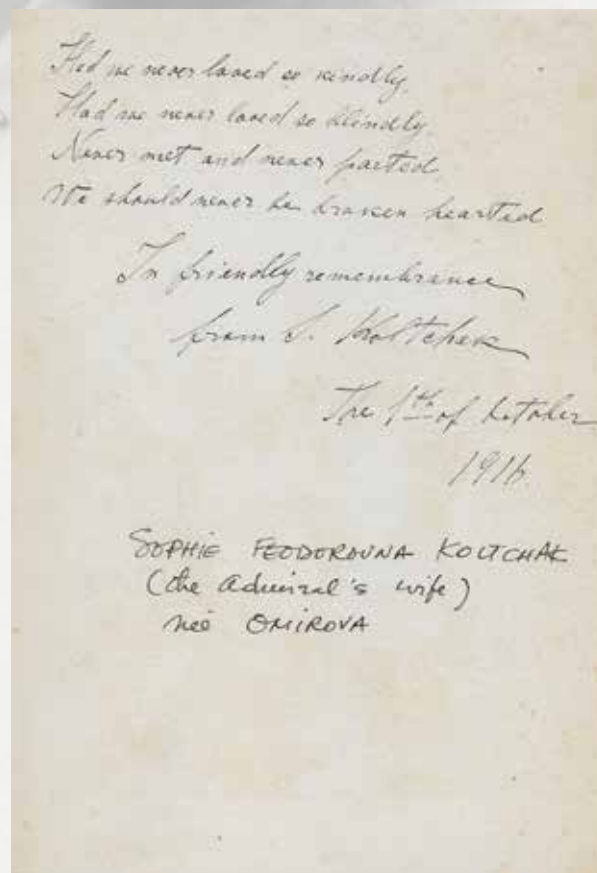 Had we never loved so kindly,
Had we never loved so blindly
Never met and never parted,
We should never be broken hearted
In friendly remembrance
from S. Koltchak
The 1th of October
1916.
SOPHIE FEODOROVNA KOLTCHAK
(the Admiral's wife)
née OMIROVA